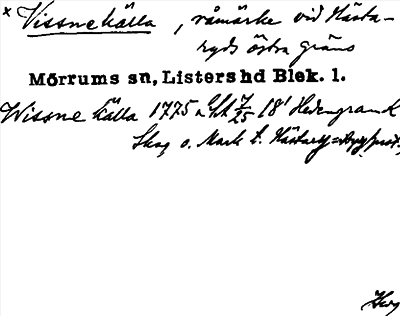 × Vissnekälla, råmärke vid Hästa-
ryds östra gräns
Mörrums sn, Listers hd Blek. l.
Wissne källa 1775 7/25 18' Hedengran K
Skog o. Mark t. Hästaryd